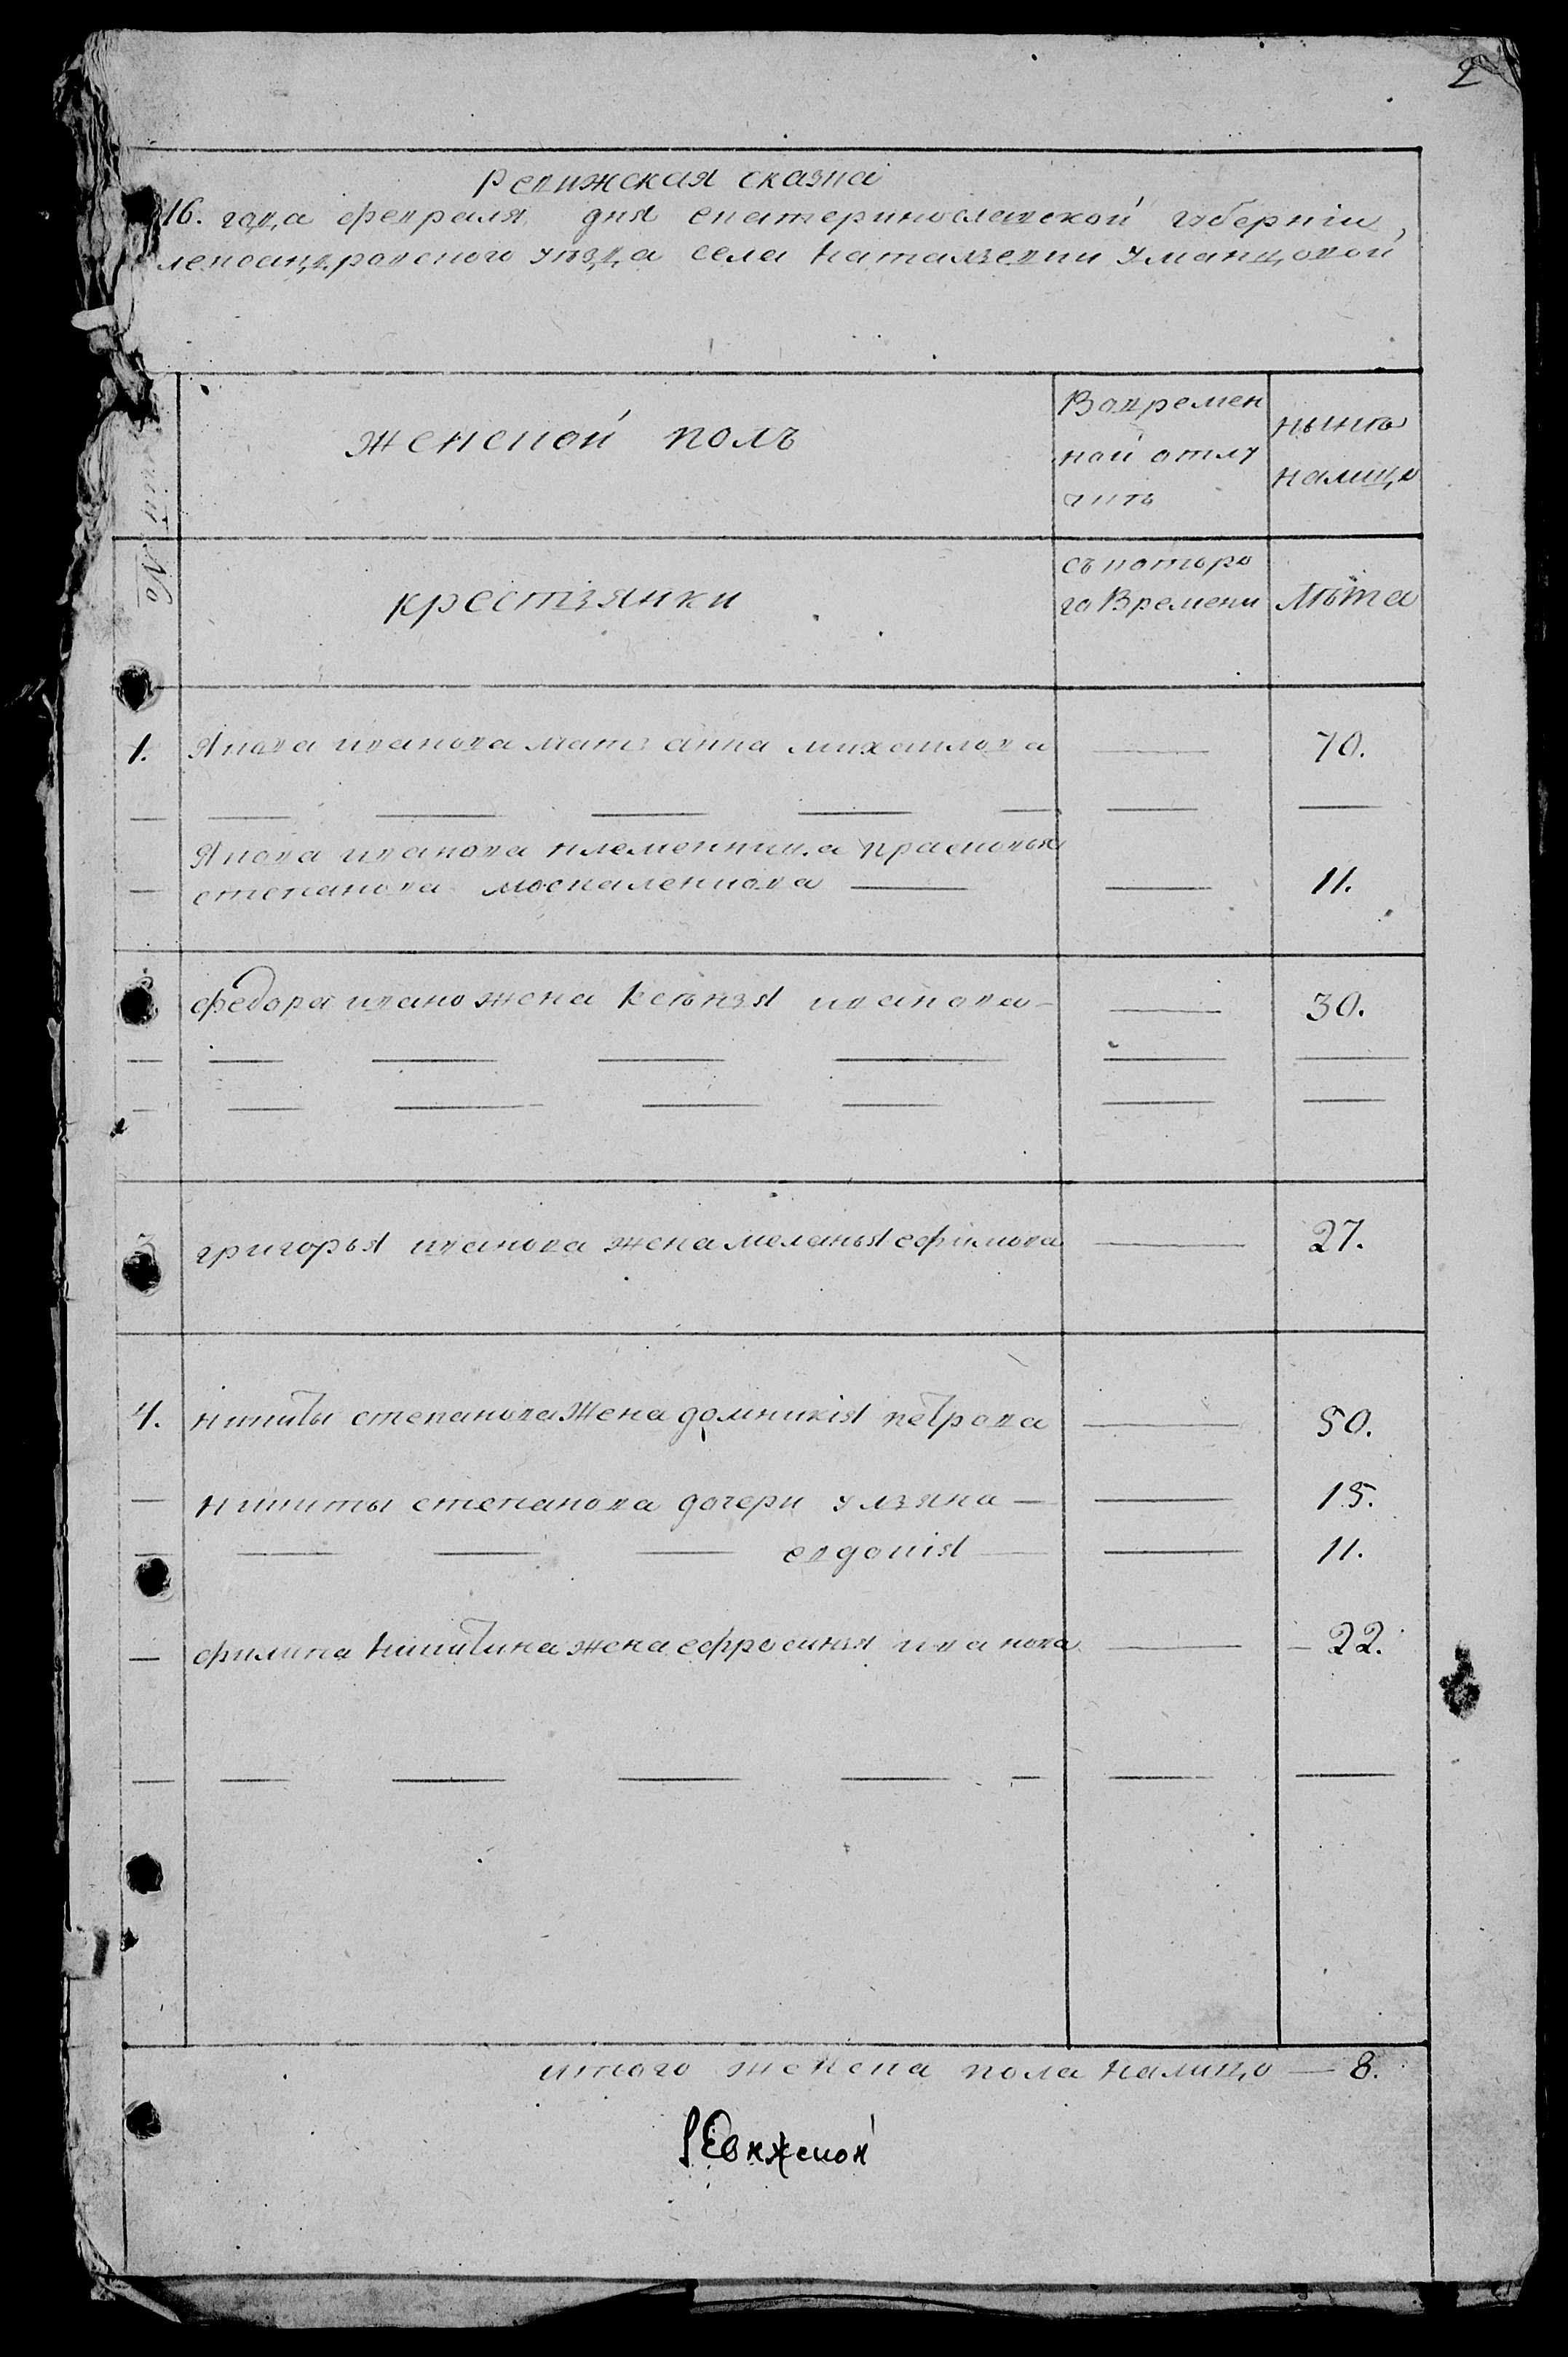 2
Ревижская сказка
16. года февраля дня екатеринославской губерніи,
лександровского уѣзда села натальевки уманцовой
№
женской полъ
Вовремен
ной отлу
чкѣ
нынѣ
налицо
крестьянки
съ которо
го Времени
лѣта
1. Якова иванова мать анна михаилова — 70.
Якова иванова племенница прасковья
степанова москаленкова — — 11.
федора ивано жена ксѣнья иванова — — 30.
3 григорья иванова жена меланья ефимова — 27.
4. никиты степанова жена домникія петрова — 50.
— никиты степанова дочери ульяна — — 15.
— — — — евдокія — — 11.
— филипа никитина жена ефросинья иванова — 22.
итого женска пола налицо — 8.